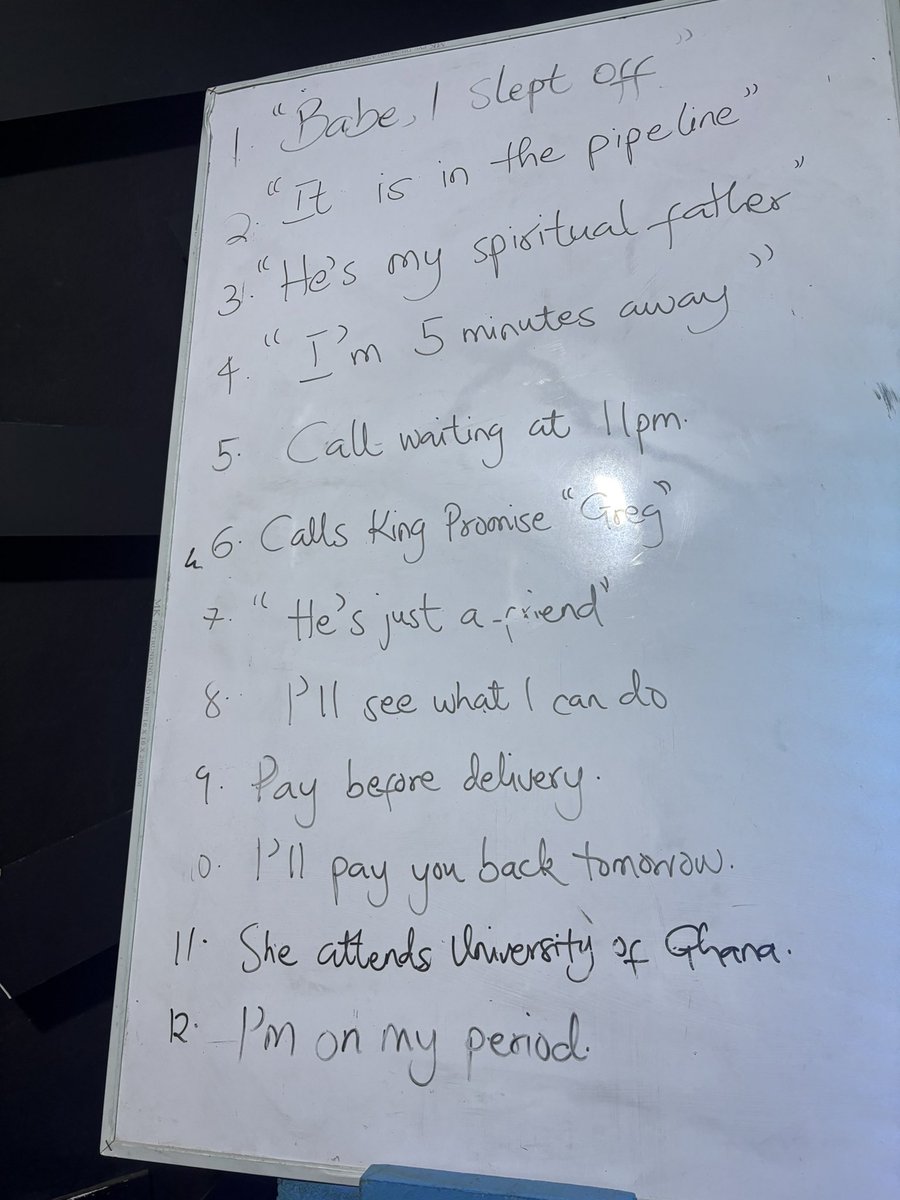 1. "Babe, I slept off"
2. "It is in the pipeline"
3. "He's my spiritual father"
4. "I'm 5 minutes away"
5. Call waiting at 11pm.
6. Calls King Promise "Greg"
7. "He's just a friend"
8. I'll see what I can do
9. Pay before delivery.
10. I'll pay you back tomorrow.
11. She attends University of Ghana.
12. I'm on my period.